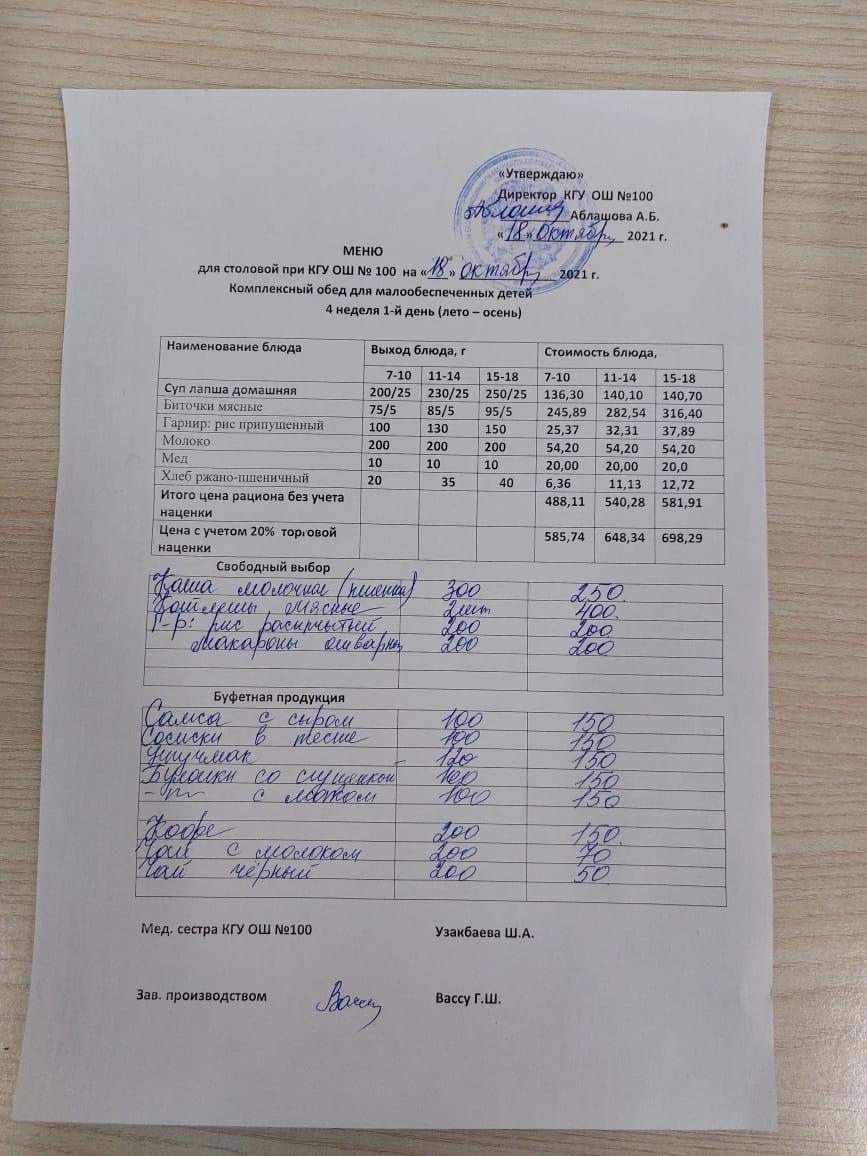 «Утверждаю»
Директор КГУ ОШ №100
Аблашова А.Б.
«18» октября 2021 г.
МЕНЮ
для столовой при КГУ ОШ № 100 на «18» октября 2021 г.
Комплексный обед для малообеспеченных детей
4 неделя 1-й день (лето – осень)
Наименование блюда Выход блюда, г Стоимость блюда,
7-10 11-14 15-18 7-10 11-14 15-18
Суп лапша домашняя 200/25 230/25 250/25 136,30 140,10 140,70
Биточки мясные 75/5 85/5 95/5 245,89 282,54 316,40
Гарнир: рис припущенный 100 130 150 25,37 32,31 37,89
Молоко 200 200 200 54,20 54,20 54,20
Мед 10 10 10 20,00 20,00 20,0
Хлеб ржано-пшеничный 20 35 40 6,36 11,13 12,72
Итого цена рациона без учета наценки 488,11 540,28 581,91
Цена с учетом 20% торговой наценки 585,74 648,34 698,29
Свободный выбор
Каша молочная (пшенная) 300 250
Котлеты мясные 2шт 400
Г-р: рис рассыпчатый 200 200
Макароны отварные 200 200
Буфетная продукция
Самса с сыром 100 150
Сосиски в тесте 100 150
Учпучмак 120 150
Булочки со сгущенкой 100 150
с маком 100 150
Кофе 200 150
Чай с молоком 200 70
Чай чёрный 200 50
Мед. сестра КГУ ОШ №100 Узакбаева Ш.А.
Зав. производством Вассу Г.Ш.